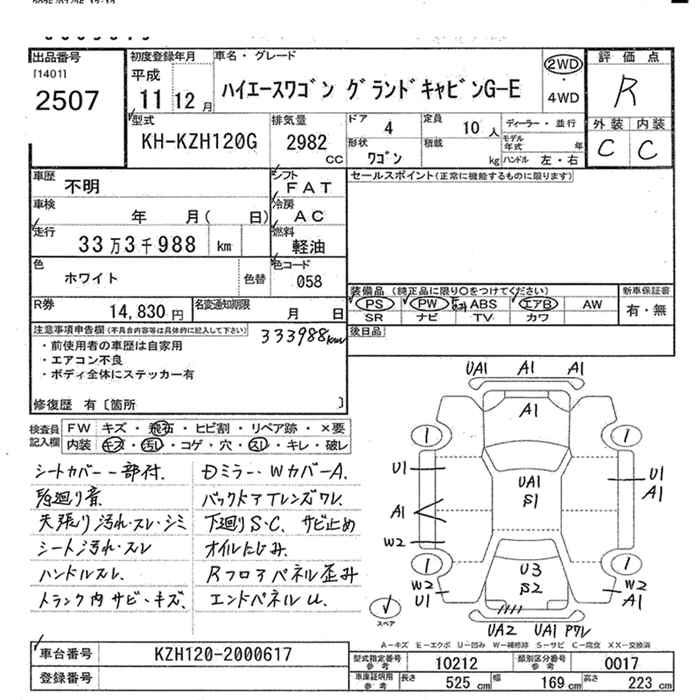 出品番号
[1401]
2507
初度登録年月
平成
11 12 月
車名・グレード
ハイエースワゴン グランドキャビンG-E
2WD
・
4WD
評価点
R
外装 内装
C C
型式
KH-KZH120G
排気量
2982
CC
ドア 4
定員 10 人
形状 ワゴン
積載 kg
ディーラー・並行
モデル年式 年
ハンドル 左・右
車歴
不明
シフト
FAT
車検
年 月( 日)
冷房
AC
走行
33万3千988 km
燃料
軽油
色
ホワイト
色替
色コード
058
R券
14,830円
名変通知期限
月 日
セールスポイント(正常に機能するものに限ります)
装備品 (純正品に限り○をつけてください)
PS PW ABS エアB AW
SR ナビ TV カワ
新車保証書
有・無
後日品
注意事項申告欄 (不具合内容等は具体的に記入して下さい)
333988km
・前使用者の車歴は自家用
・エアコン不良
・ボディ全体にステッカー有
修復歴 有 [箇所 ]
検査員記入欄
FW キズ・飛石・ヒビ割・リペア跡・×要
内装 キズ・汚れ・コゲ・穴・スレ・キレ・破レ
シートカバー一部付.
天張り汚れ・スレ・シミ
シート汚れ・スレ
ハンドルスレ.
トランク内サビ・キズ.
Dミラー・WカバーA.
バックドアTレンズワレ.
下廻りS・C、サビ止め
オイルにじみ.
Rフロアパネル歪み
エンドパネルU.
UA1 A1 A1
A1
1 1
U1
UA1
S1
U1
A1
A1
W2
1 1
U3
S2
W2
U1
W2
A1
UA2 UA1 Pワレ
スペア
A-キズ E-エクボ U-凹み W-補修跡 S-サビ C-腐食 XX-交換済
車台番号
KZH120-2000617
登録番号
型式指定番号参考
10212
類別区分番号参考
0017
車庫証明用参考
長さ 525 cm
幅 169 cm
高さ 223 cm